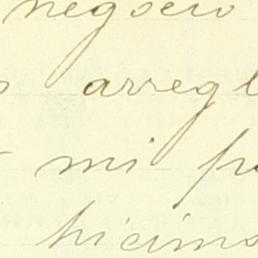 negocio
arregl
mi p
hicims